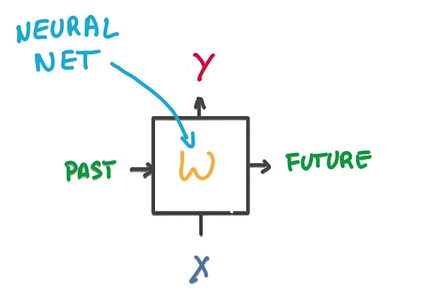 NEURAL
NET
Y
PAST
W
FUTURE
X